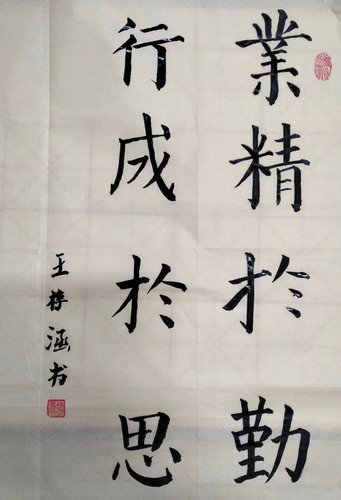 業精於勤
行成於思
王梓涵书